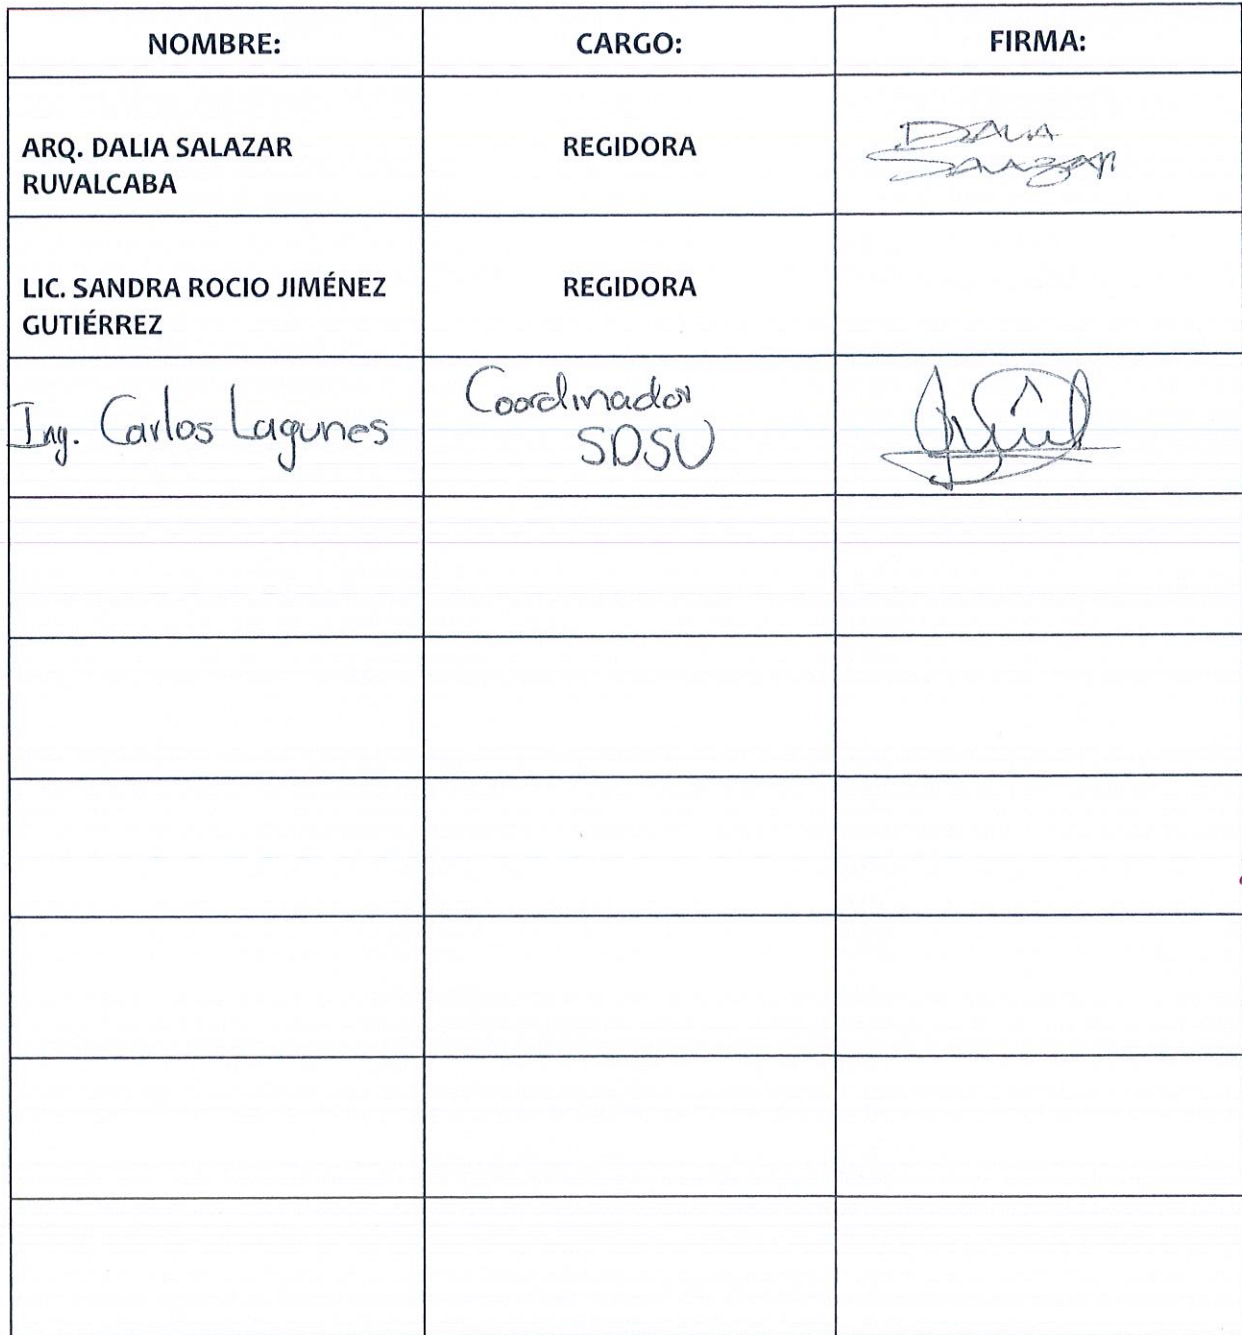 NOMBRE: CARGO: FIRMA:
ARQ. DALIA SALAZAR
RUVALCABA
REGIDORA
DALIA
SALAZAR
LIC. SANDRA ROCIO JIMÉNEZ
GUTIÉRREZ
REGIDORA
Ing. Carlos Lagunes
Coordinador
SDSU